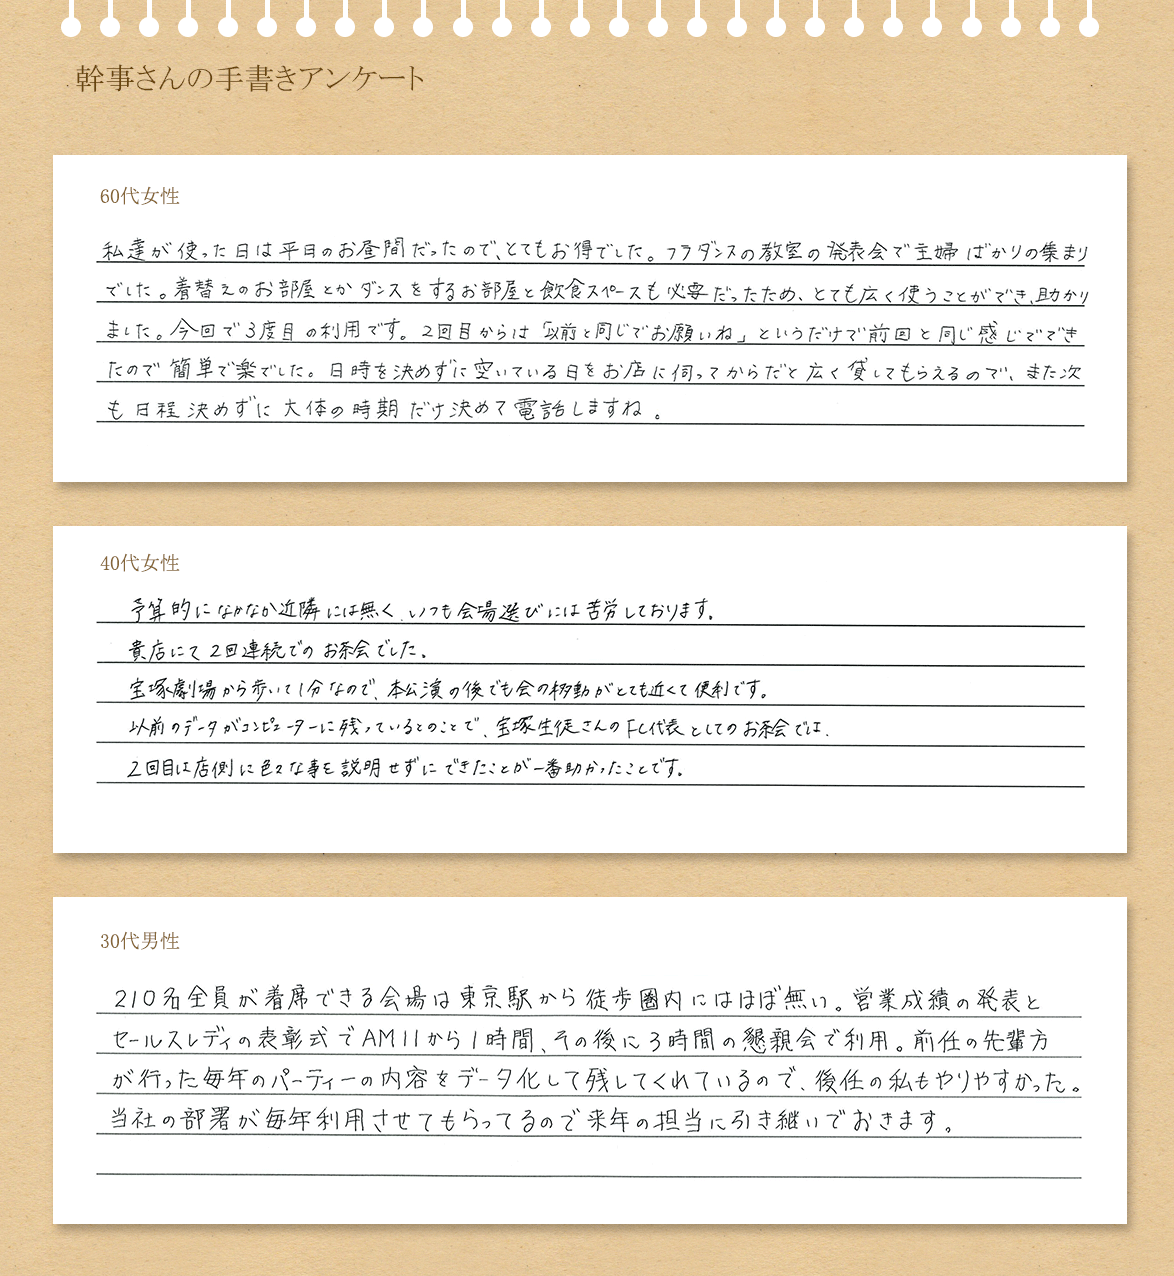 幹事さんの手書きアンケート
60代女性
私達が使った日は平日のお昼間だったので、とてもお得でした。フラダンスの教室の発表会で主婦ばかりの集まり
でした。着替えのお部屋とかダンスをするお部屋と飲食スペースも必要だったため、とても広く使うことができ、助かり
ました。今回で3度目の利用です。2回目からは「以前と同じでお願いね」というだけで前回と同じ感じででき
たので簡単で楽でした。日時を決めずに空いている日をお店に伺ってからだと広く貸してもらえるので、また次
も日程決めずに大体の時期だけ決めて電話しますね。
40代女性
予算的になかなか近隣には無く、いつも会場選びには苦労しております。
貴店にて2回連続でのお茶会でした。
宝塚劇場から歩いて1分なので、本公演の後でも会の移動がとても近くて便利です。
以前のデータがコンピューターに残っているとのことで、宝塚生徒さんのFC代表としてのお茶会では、
2回目は店側に色々な事を説明せずにできたことが一番助かったことです。
30代男性
210名全員が着席できる会場は東京駅から徒歩圏内にはほぼ無い。営業成績の発表と
セールスレディの表彰式でAM11から1時間、その後に3時間の懇親会で利用。前任の先輩方
が行った毎年のパーティーの内容をデータ化して残してくれているので、後任の私もやりやすかった。
当社の部署が毎年利用させてもらってるので来年の担当に引き継いでおきます。